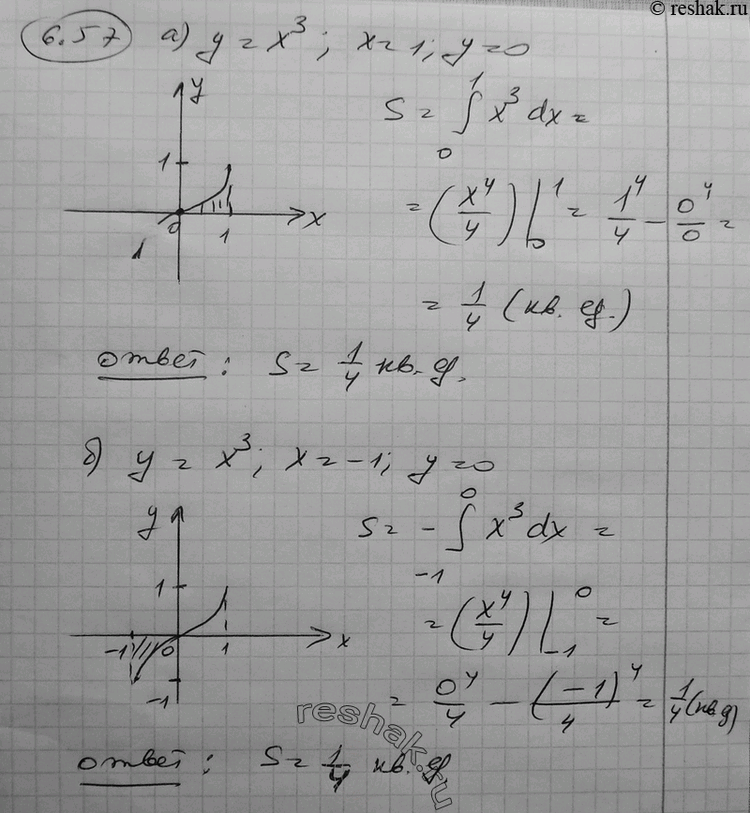 © reshak.ru
6.57 а) y = x³; x = 1; y = 0
y
1
0
1
x
S = ∫₀¹ x³ dx =
= (x⁴/4) |₀¹ = 1⁴/4 - 0⁴/0 =
= 1/4 (кв. ед.)
ответ: S = 1/4 кв. ед.
б) y = x³; x = -1; y = 0
y
1
-1
0
1
x
-1
S = - ∫₋₁⁰ x³ dx =
= (x⁴/4) |₋₁⁰ =
= 0⁴/4 - (-1)⁴/4 = 1/4 (кв д)
ответ: S = 1/4 кв. ед.
reshak.ru